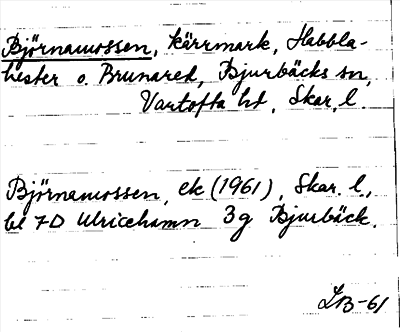 Björnamossen, kärrmark, Habbla-
hester o. Brunared, Bjurbäcks sn,
Vartofta hd, Skar. l.
Björnamossen, ek (1961), Skar. l.,
bl 7D Ulricehamn 3g Bjurbäck.
IB-61